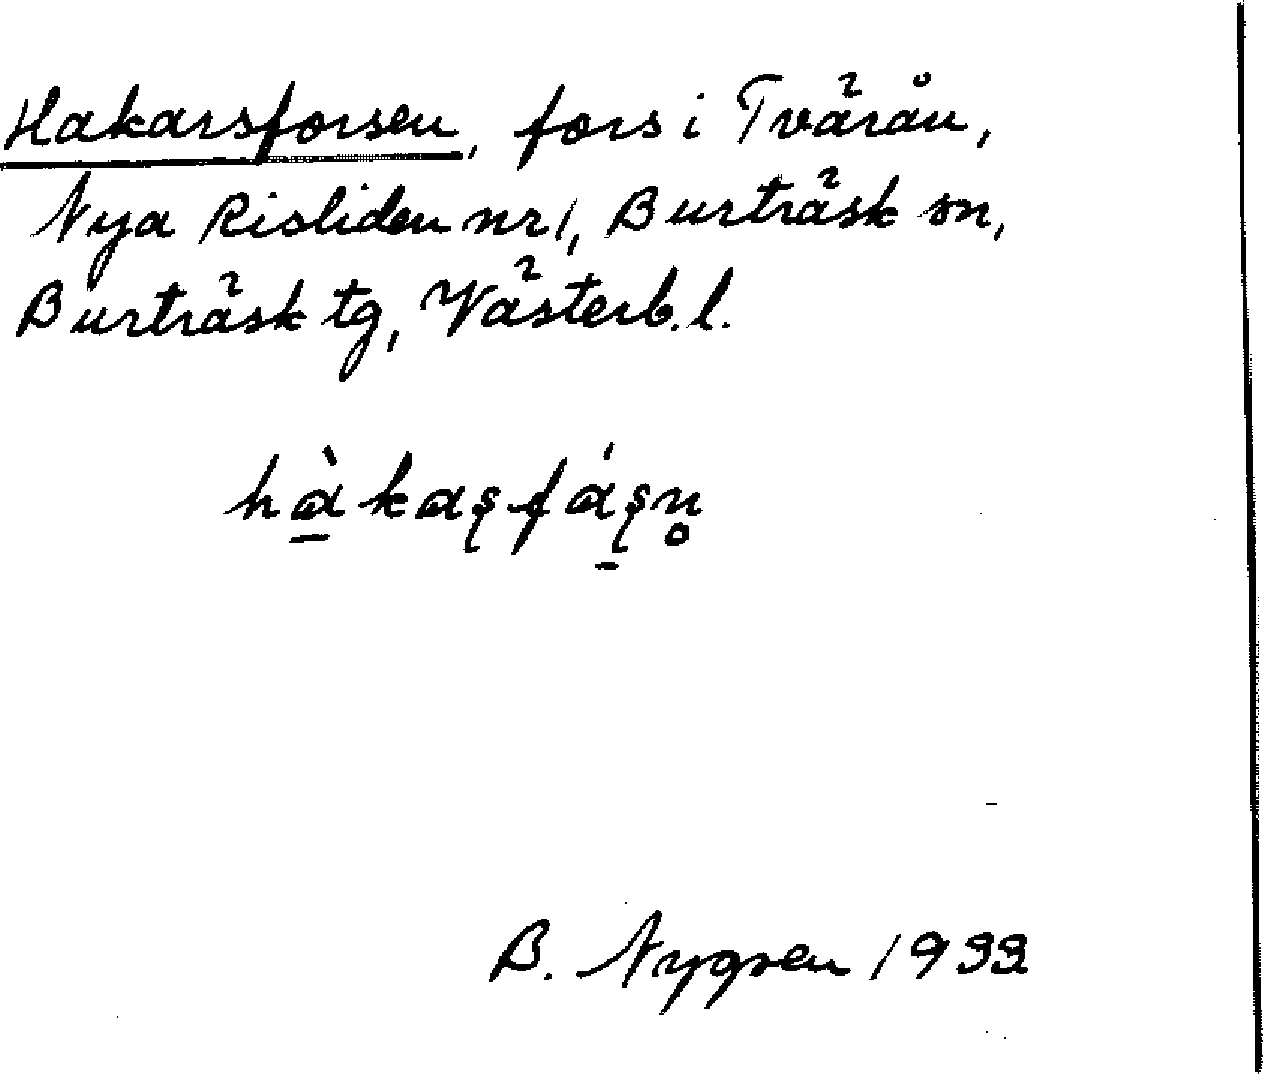 Hakarsforsen, fors i Tvärån,
Nya Risliden nr 1, Burträsk sn,
Burträsk tg, Västerb. l.
hа̱̀kaʂfá̱ʂn̥
B. Nygren 1933